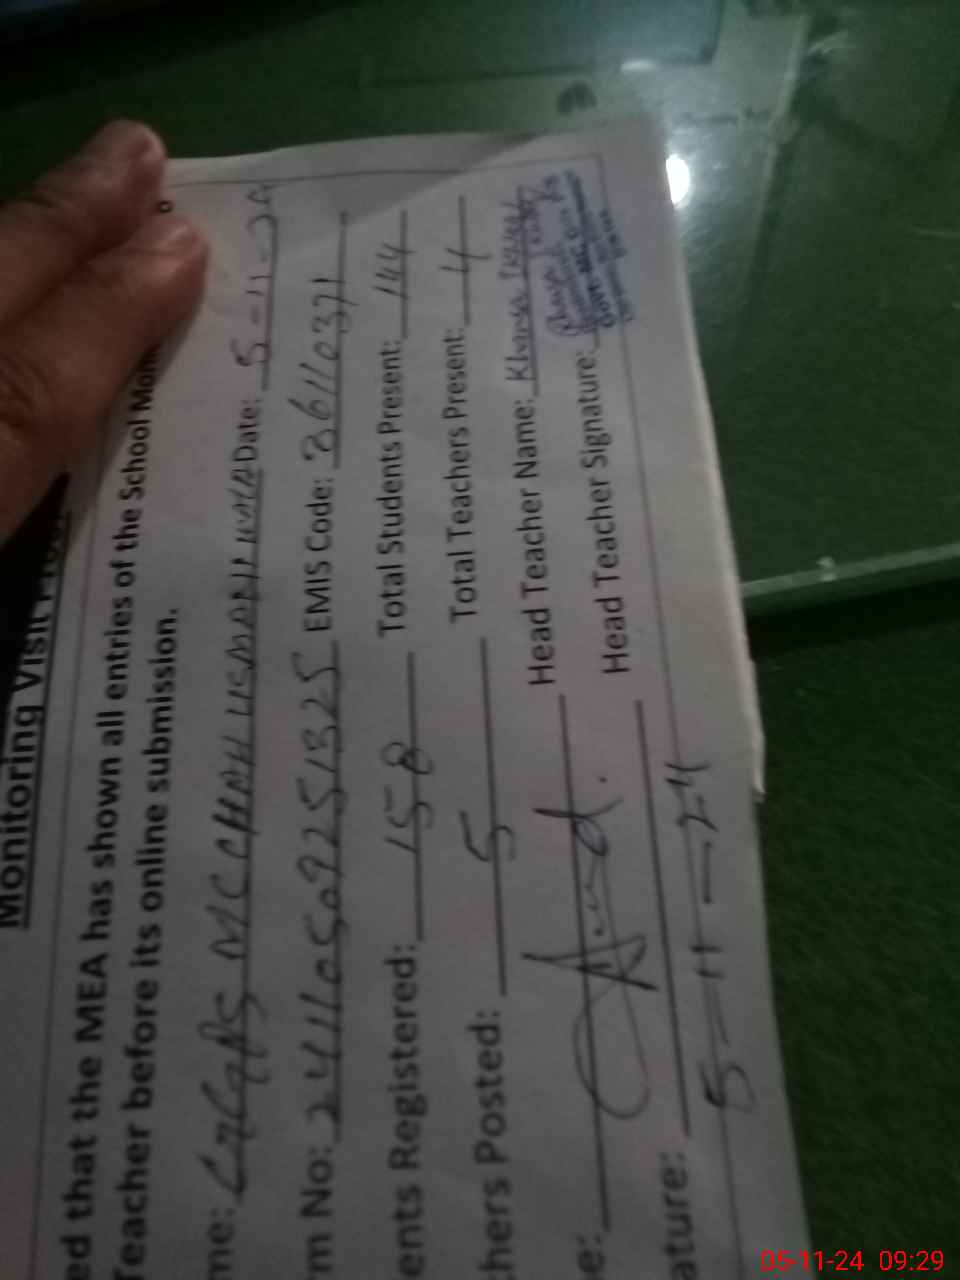 Monitoring Visit
ed that the MEA has shown all entries of the School
Teacher before its online submission.
me: GGPS MC CHAH USMANI WALA Date: 5-11-24
m No: 241105092251325 EMIS Code: 36110371
ents Registered: 158 Total Students Present: 144
hers Posted: 5 Total Teachers Present: 4
e: Head Teacher Name: Khansa
ature: Head Teacher Signature:
5-11-24
05-11-24 09:29